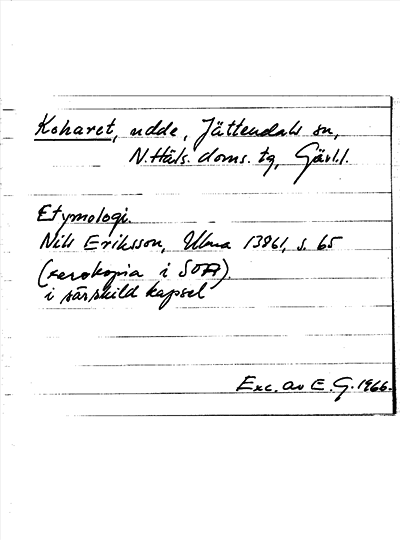 Koharet, udde, Jättendals sn,
N. Häls. doms. tg, Gävl.l.
Etymologi.
Nils Eriksson, Ulma 13861, s. 65
(xerokopia i SOA)
i särskild kapsel
Exc. av E. G. 1966.